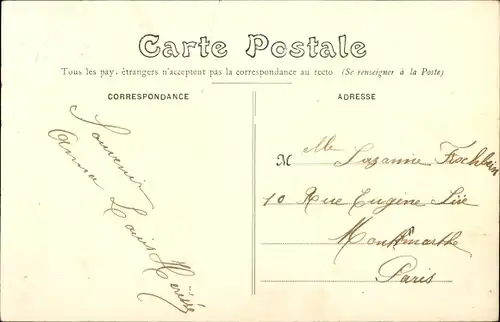 Carte Postale
Tous les pays étrangers n'acceptent pas la correspondance au recto (Se renseigner à la Poste)
CORRESPONDANCE
ADRESSE
Souvenir
Louis
M Mlle Suzanne Fischbein
10 Rue Eugène Süe
Montmarthe
Paris